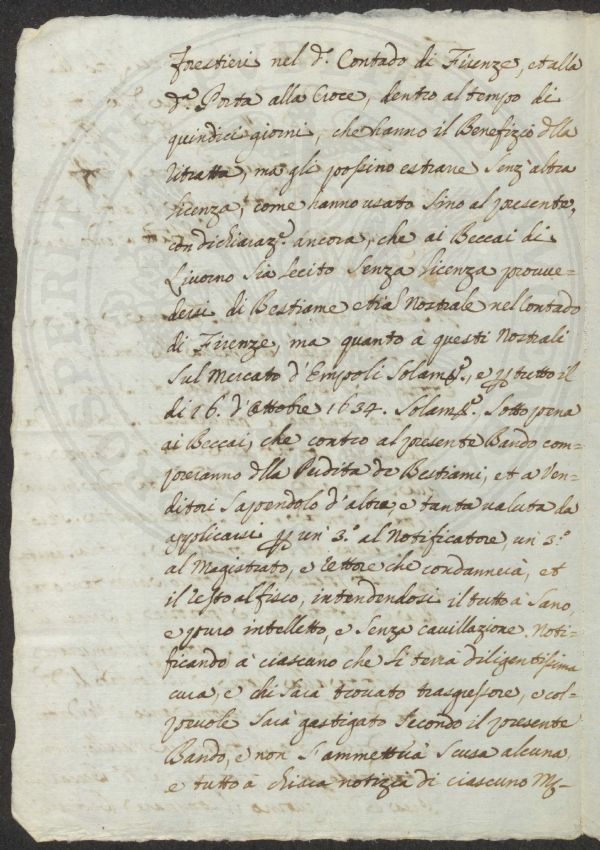 forestieri nel d.º Contado di Firenze, et alla
d.ª Porta alla Croce, dentro al tempo di
quindici giorni, che hanno il Benefizio dlla
ritratta, ma gli possino estrarre senz'altra
licenza, come hanno usato sino al presente,
con dichiaraz.e ancora, che ai Beccai di
Livorno sia lecito senza licenza provve-
dersi di Bestiame etiã Nostrale nel Contado
di Firenze, ma quanto à questi Nostrali
sul Mercato d'Empoli solam.te, e p tutto il
di 16. d'Ottobre 1634. solam.te, sotto pena
ai Beccai, che contro al presente Bando com-
preranno dlla Perdita de Bestiami, et a Ven-
ditori sapendolo d'altra, e tanta valuta da
applicarsi p un 3.º al Notificatore, un 3.º
al Magistrato, e rettore che condannerà, et
il resto al fisco, intendendosi il tutto à sano,
e puro intelletto, e senza cavillazione. Noti-
ficando à ciascuno che si terrà diligentissima
cura e chi sarà trovato trasgressore, e col-
pevole sarà gastigato secondo il presente
Bando, e non s'ammetterà scusa alcuna,
e tutto à chiara notizia di ciascuno